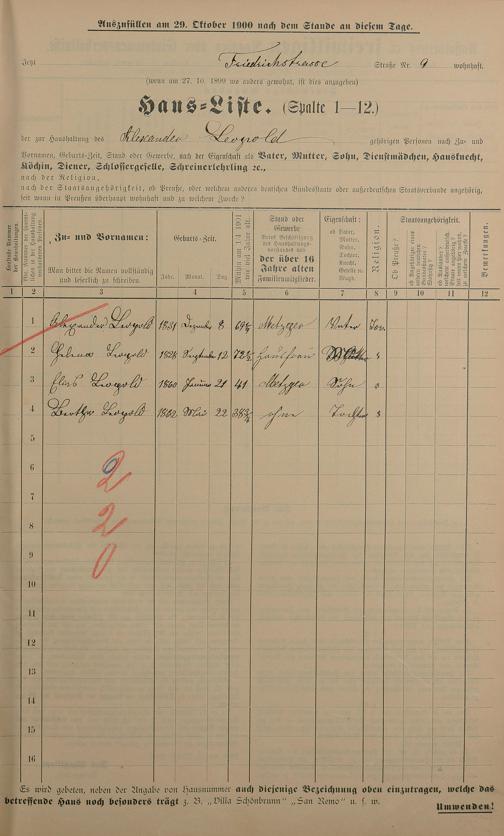 Auszufüllen am 29. Oktober 1900 nach dem Stande an diesem Tage.
Jetzt Friedrichstrasse Straße Nr. 9 wohnhaft.
(wenn am 27. 10. 1899 wo anders gewohnt, ist dies anzugeben)
Haus-Liste. (Spalte 1—12.)
der zur Haushaltung des Alexander Leopold gehörigen Personen nach Zu- und
Vornamen, Geburts-Zeit, Stand oder Gewerbe, nach der Eigenschaft als Vater, Mutter, Sohn, Dienstmädchen, Hausknecht,
Köchin, Diener, Schlossergeselle, Schreinerlehrling ec.,
nach der Religion,
nach der Staatsangehörigkeit, ob Preuße, oder welchem anderen deutschen Bundesstaate oder außerdeutschen Staatsverbande angehörig,
seit wann in Preußen überhaupt wohnhaft und zu welchem Zwecke?
Zu- und Vornamen:
Man bittet die Namen vollständig und leserlich zu schreiben.
Geburts-Zeit.
Jahr. Monat. Tag.
Stand oder Gewerbe
der über 16 Jahre alten
Familienmitglieder.
Eigenschaft:
ob Vater, Mutter, Sohn, Tochter, Knecht, Geselle o. Magd.
Religion.
Staatsangehörigkeit.
Ob Preuße?
Bemerkungen.
1 2 3 4 5 6 7 8 9 10 11 12
1 Alexander Leopold 1831 Dezember 8 Metzger Vater
2 Helena Leopold 1828 September 12 Hausfrau
3 Elias Leopold 1860 Januar 21 41 Metzger Sohn
4 Bertha Leopold 1862 Mai 22 ohne Tochter
5
6
2
7
8
2
9
0
10
11
12
13
14
15
16
Es wird gebeten, neben der Angabe von Hausnummer auch diejenige Bezeichnung oben einzutragen, welche das
betreffende Haus noch besonders trägt z. B. „Villa Schönbrunn" „San Remo" u. s. w.
Umwenden!